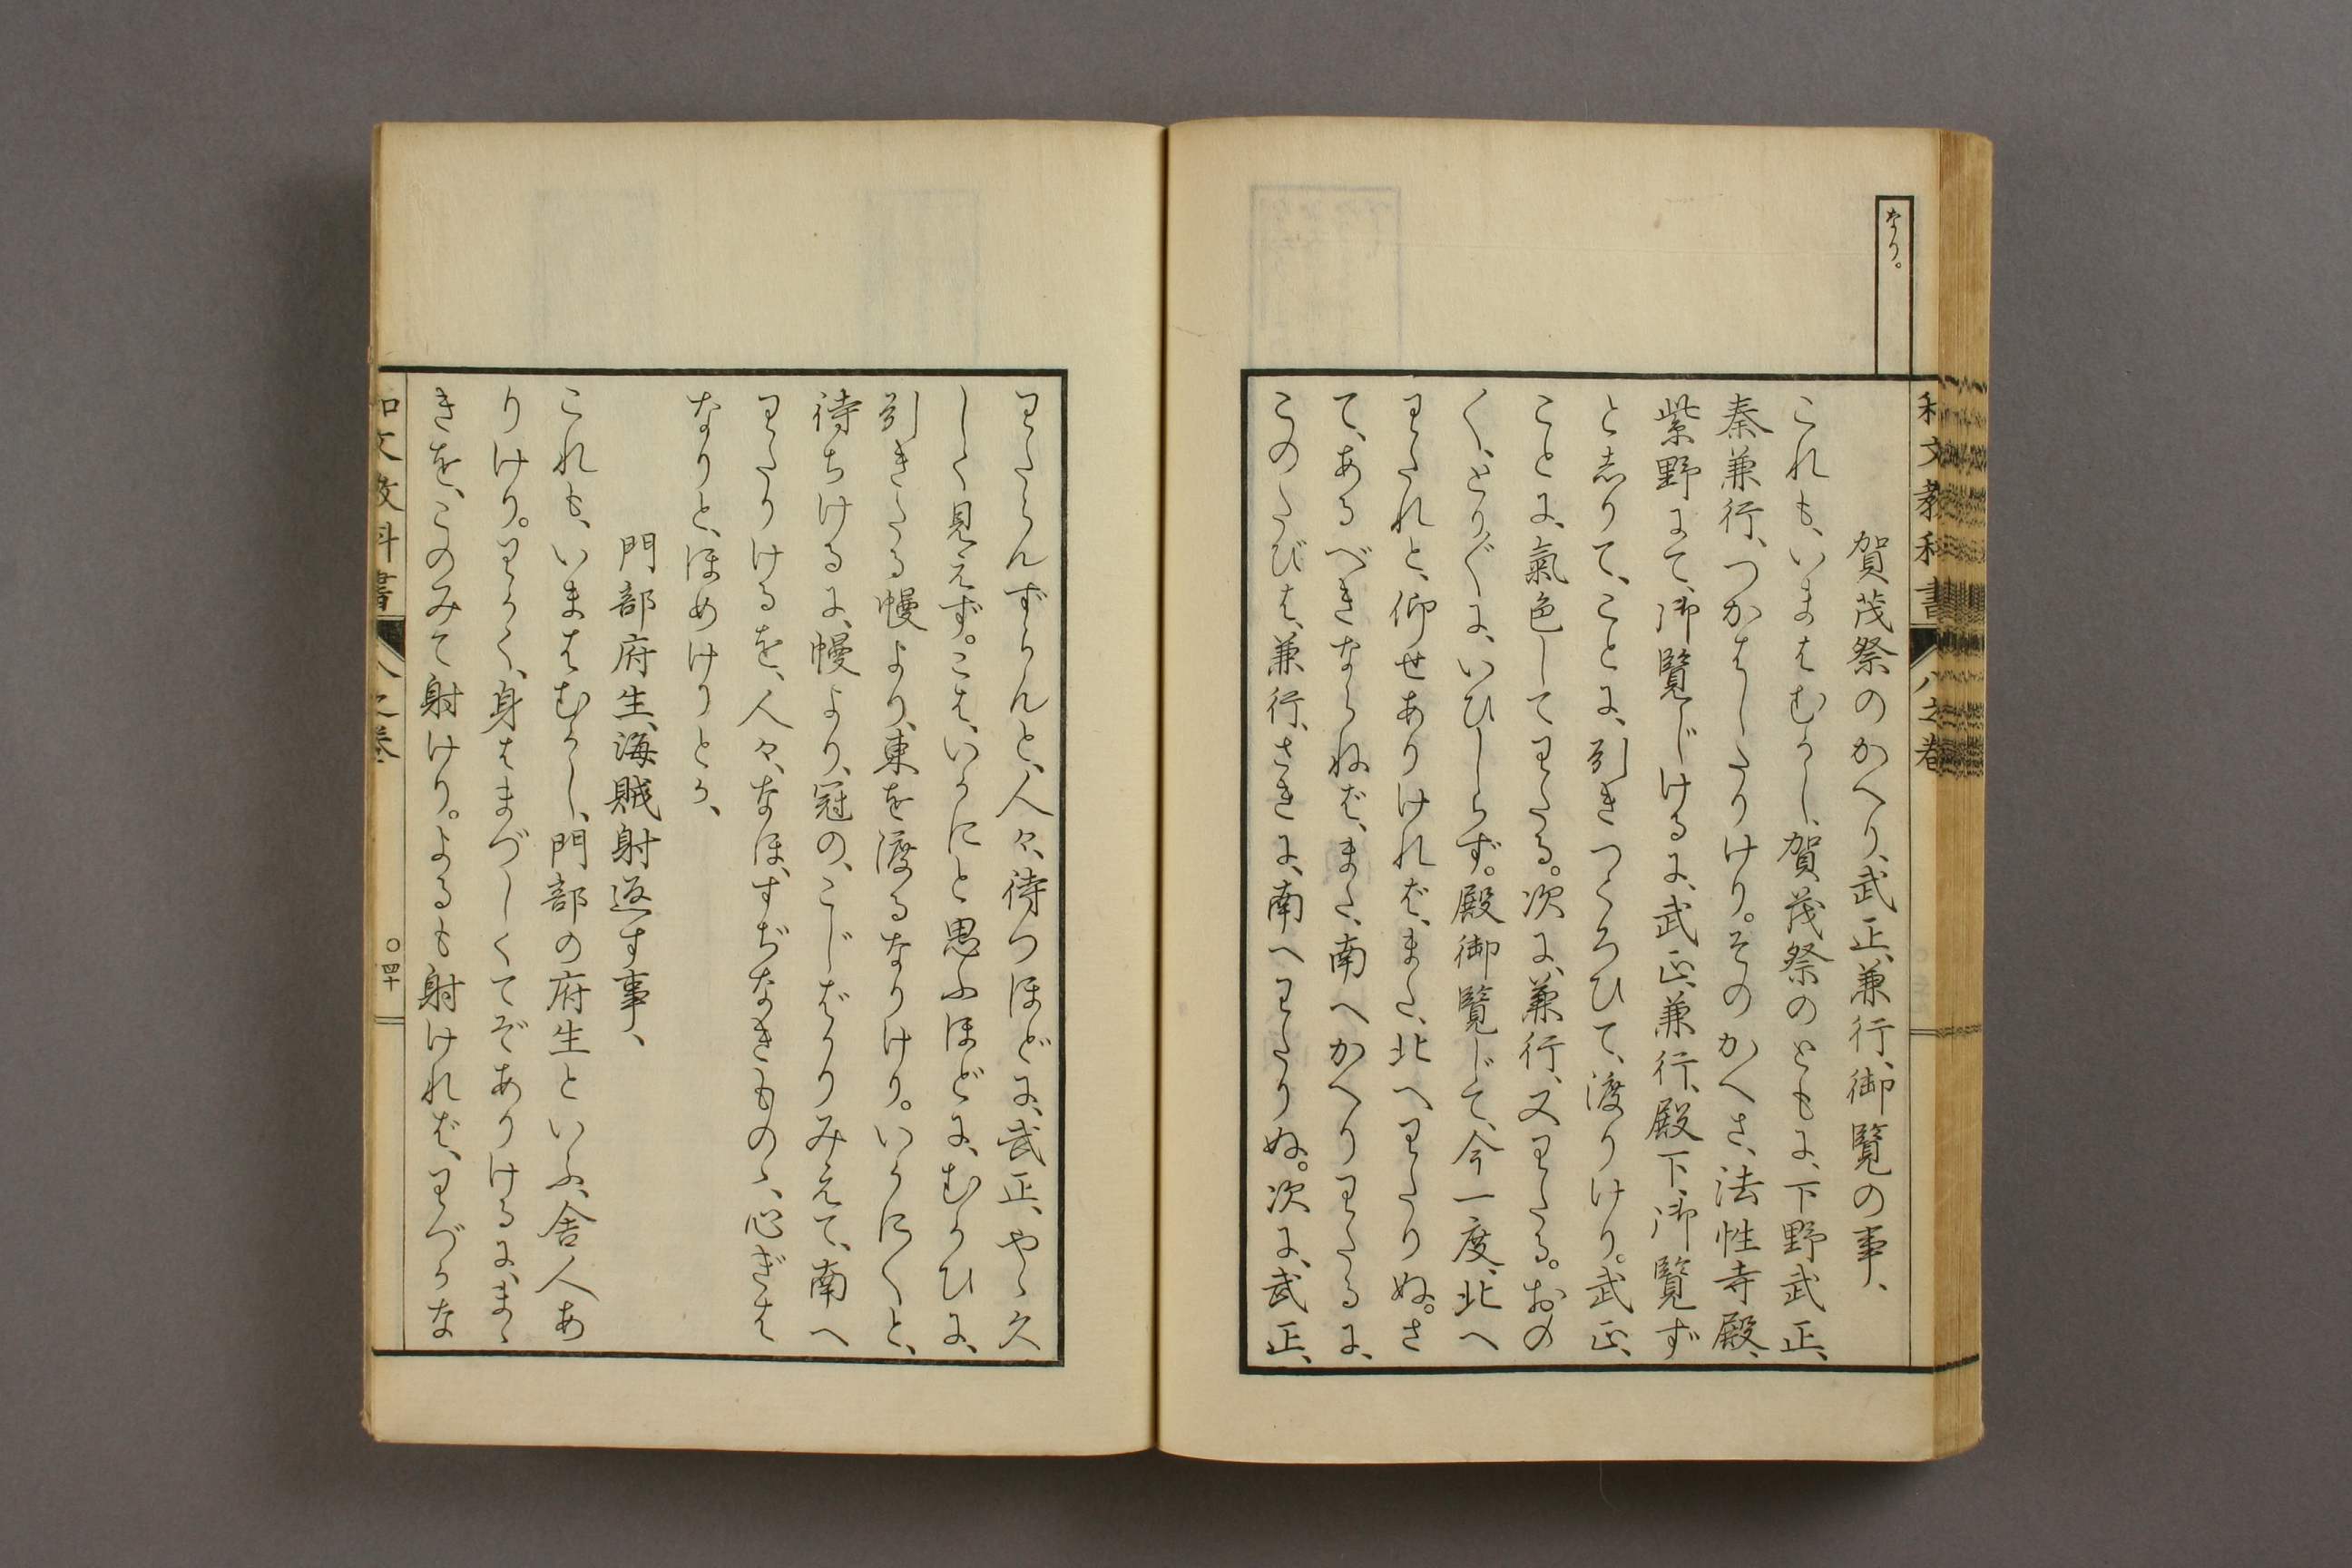 なり。
和文教科書 八之巻
賀茂祭のかへり、武正、兼行、御覽の事、
これも、いまはむかし、賀茂祭のともに、下野武正、
秦兼行、つかはしたりけり。そのかへさ、法性寺殿、
紫野にて、御覽じけるに、武正、兼行、殿下、御覽ず
と志りて、ことに、引きつくろひて、渡りけり。武正、
ことに、氣色してわたる。次に、兼行、又わたる。おの
〱、とり〲に、いひしらず。殿御覽じて、今一度、北へ
わたれと、仰せありければ、また、北へ、わたりぬ。さ
て、あるべきならねば、また、南へかへりわたるに、
このたびは、兼行、さきに、南へわたりぬ。次に、武正、
わたらんずらんと、人々、待つほどに、武正、やゝ久
しく見えず。こは、いかにと思ふほどに、むかひに、
引きたる幔より、東を渡るなりけり。いかに〱と、
待ちけるに、幔より、冠の、こじばかりみえて、南へ
わたりけるを、人々、なほ、すぢなきものゝ、心ぎは
なりと、ほめけりとか、
門部府生、海賊射返す事、
これも、いまはむかし、門部の府生といふ、舎人あ
りけり。わかく、身はまづしくてぞありけるに、まゝ
きを、このみて射けり。よるも射ければ、わづかな
和文教科書 八之巻 〇四十